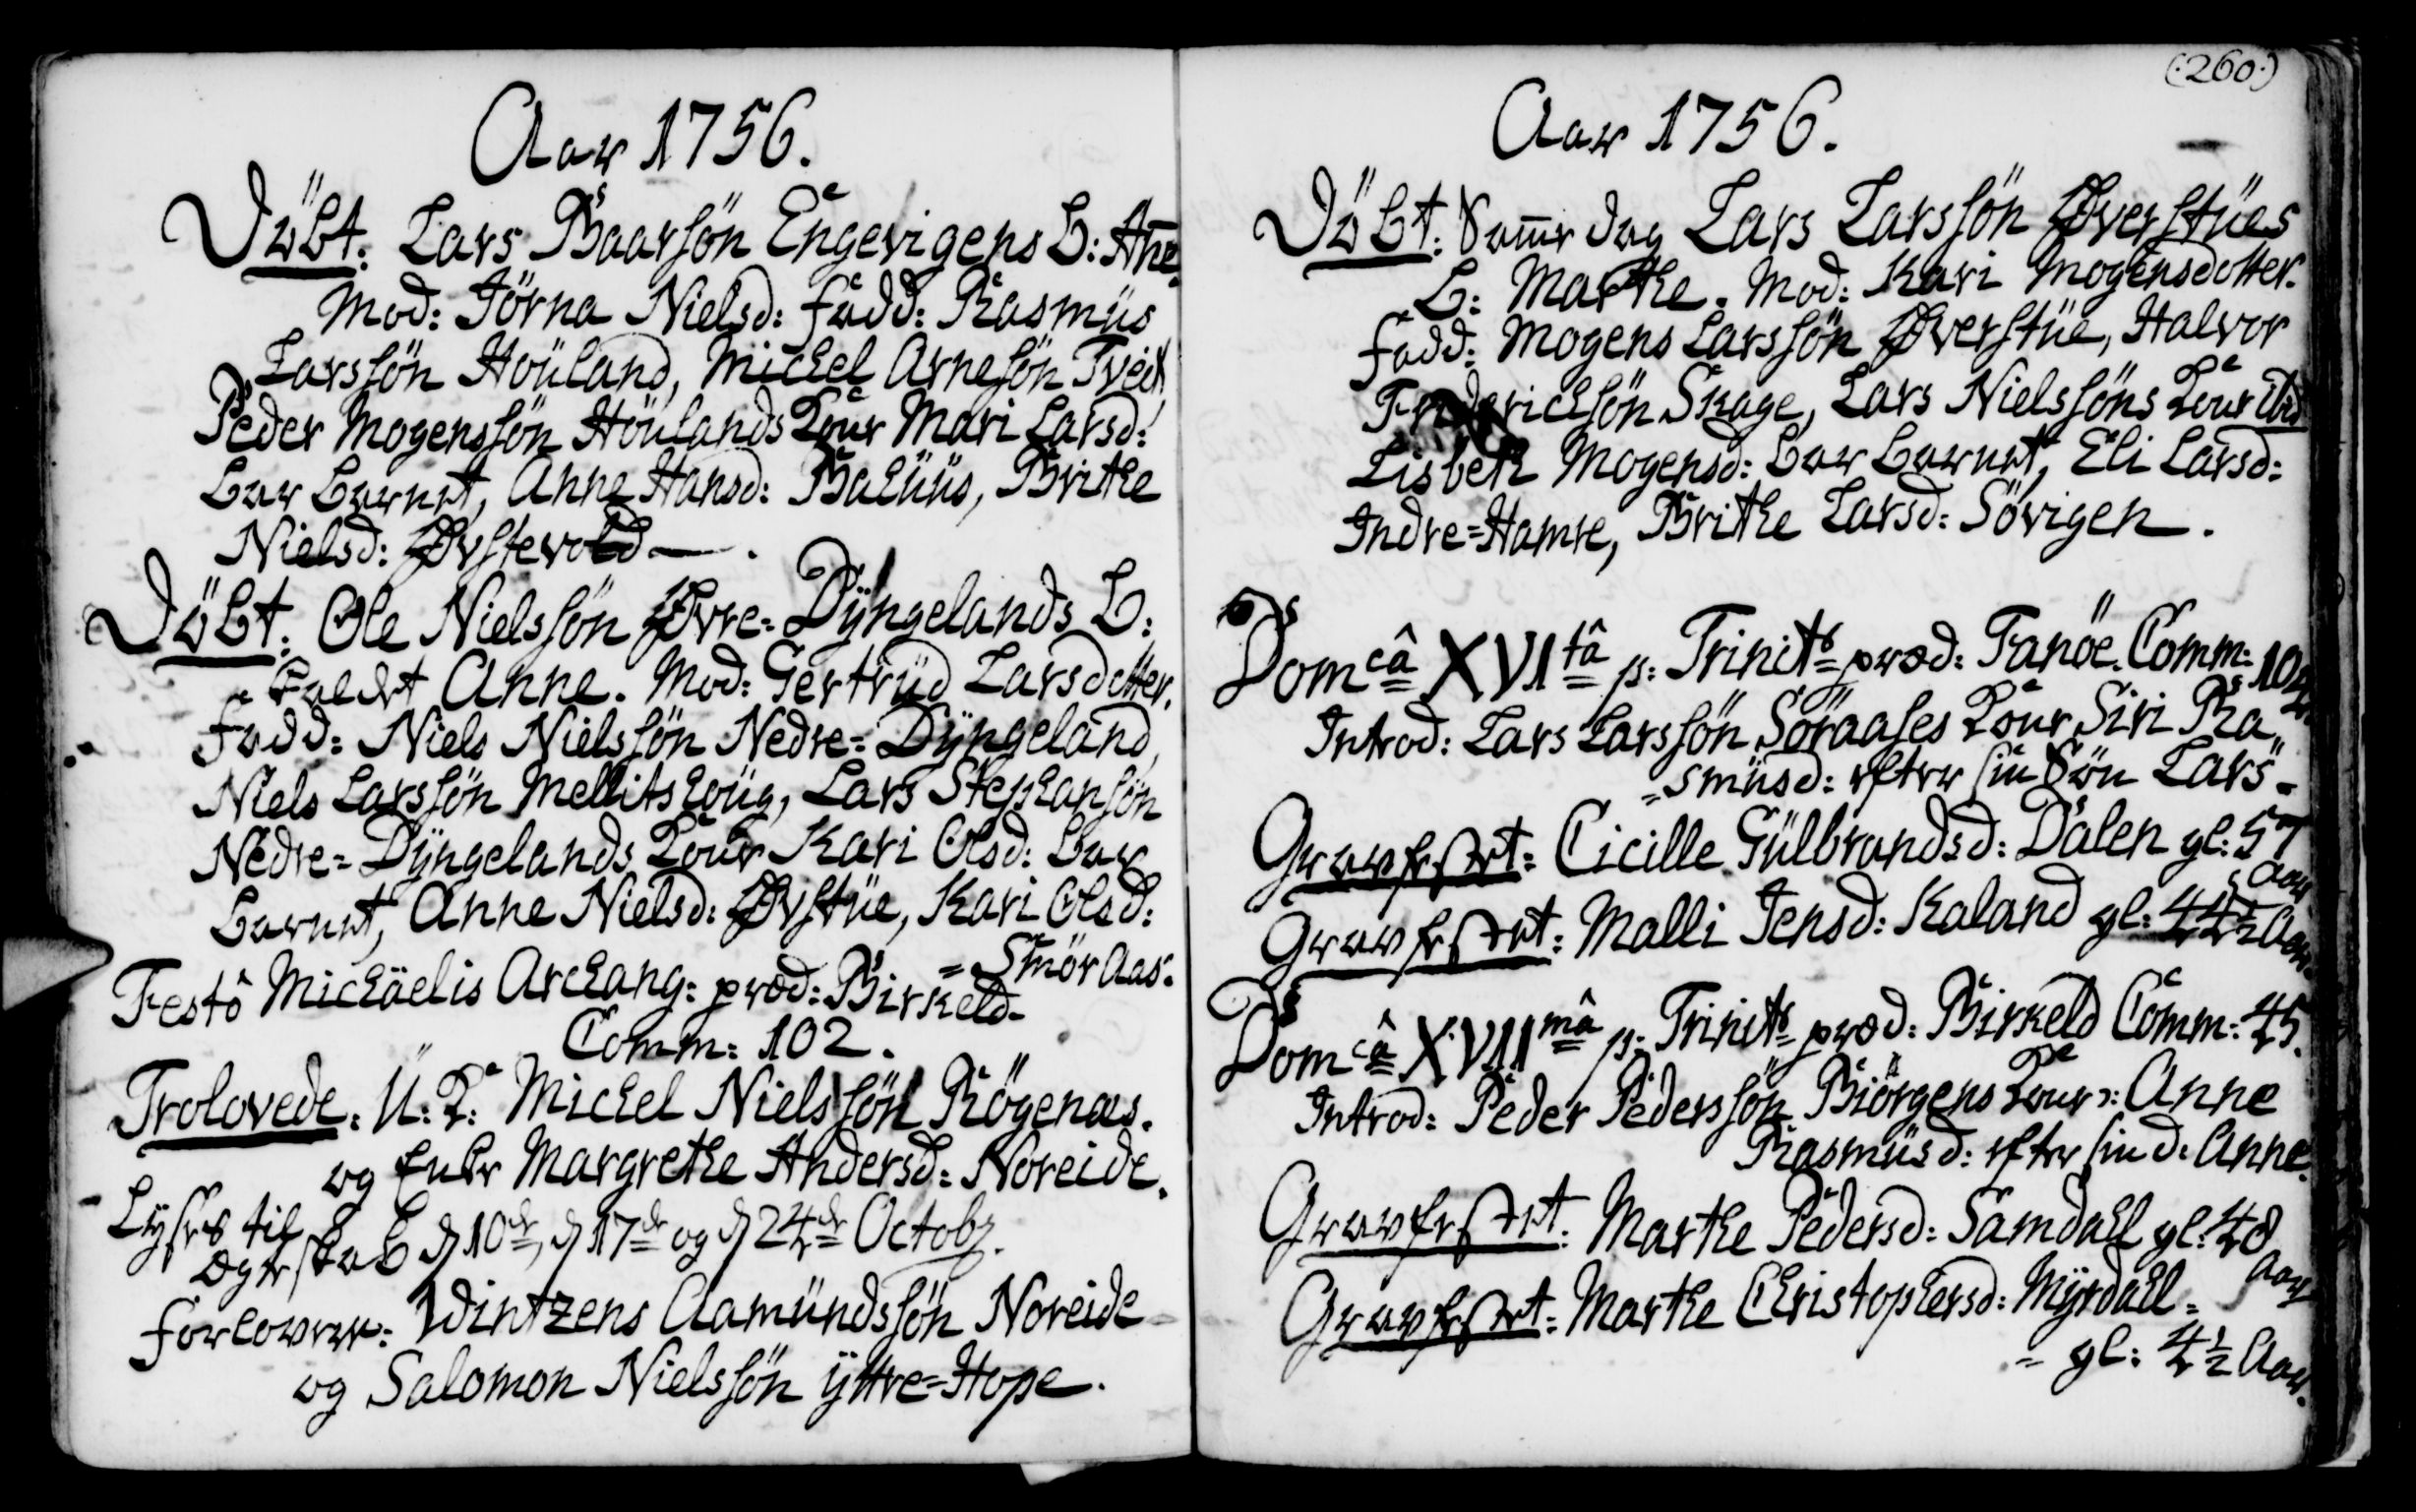 Aar 1756.
Döbt: Lars Baarsön Engevigens b: Anne
Mod: Jörna Nielsd: fadd: Rasmüs
Larssön Höüland, Michel Arnesön Tveit,
Peder Mogenssön Höülands Kone Mari Larsd:
bar barnet, Anne Hansd: Bahüüs, Brithe
Nielsd: Øvstevold.
Döbt: Ole Nielssön Øvre=Dÿngelands b:
kaldet Anne. Mod: Gertrüd Larsdotter.
fadd: Niels Nielssön Nedre=Dÿngeland,
Niels Larssön Mellitshoüg, Lars Stephanson
Nedre=Dÿngelands Kone Kari Olsd: bar
barnet, Anne Nielsd: Øvstüe, Kari Olsd:
=Smöraas.
Festô Michäelis Archang: præd: Birkeld
Comm: 102.
Trolovede: U: K: Michel Nielssön Rögenæs.
og Enke Margrethe Andersd: Noreide.
Lÿses til
Ægteskab d 10de, d 17de og d 24de Octobr.
forlovere: Wintzens Aamündssön Noreide
og Salomon Nielssön ÿttre=Hope.
(:260:)
Aar 1756.
Döbt: Samme dag Lars Larssön Øverstües
b: Marthe. Mod: Kari Mogensdotter.
fadd: Mogens Larssön Øverstüe, Halvor
Friderichsön Skage, Lars Nielssöns Kone ibid
Lisbeth Mogensd: bar barnet, Eli Larsd:
Indre=Hamre, Brithe Larsd: Sövigen.
Domcâ XVItâ p: Trinit: præd: Fanöe. Comm: 104.
Introd: Lars Larssön Söraases Kone Siri Ra,,
=smüsd: efter sin Sön Lars.
Græsfæstet: Cicille Gülbrandsd: Dalen gl: 57
Aar
Græsfæstet: Malli Jensd: Kaland gl: 44½ Aar.
Domcâ XVIImâ p: Trinit: præd: Birkeld Comm: 45.
Introd: Peder Pederssön Biörgens Kone: Anne
Rasmüsd: efter sin d: Anne.
Græsfæstet: Marthe Pedersd: Samdahl gl: 48
Aar
Græsfæstet: Marthe Christophersd: Mÿrdahl=
= gl: 4½ Aar.